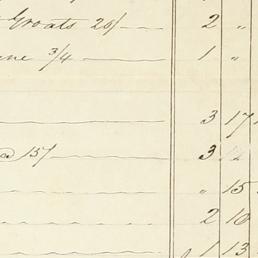 Groats 20/ 2 "
ne 3/4 1 "
3 17
a 15/ 3
" 15
2 10
1 13